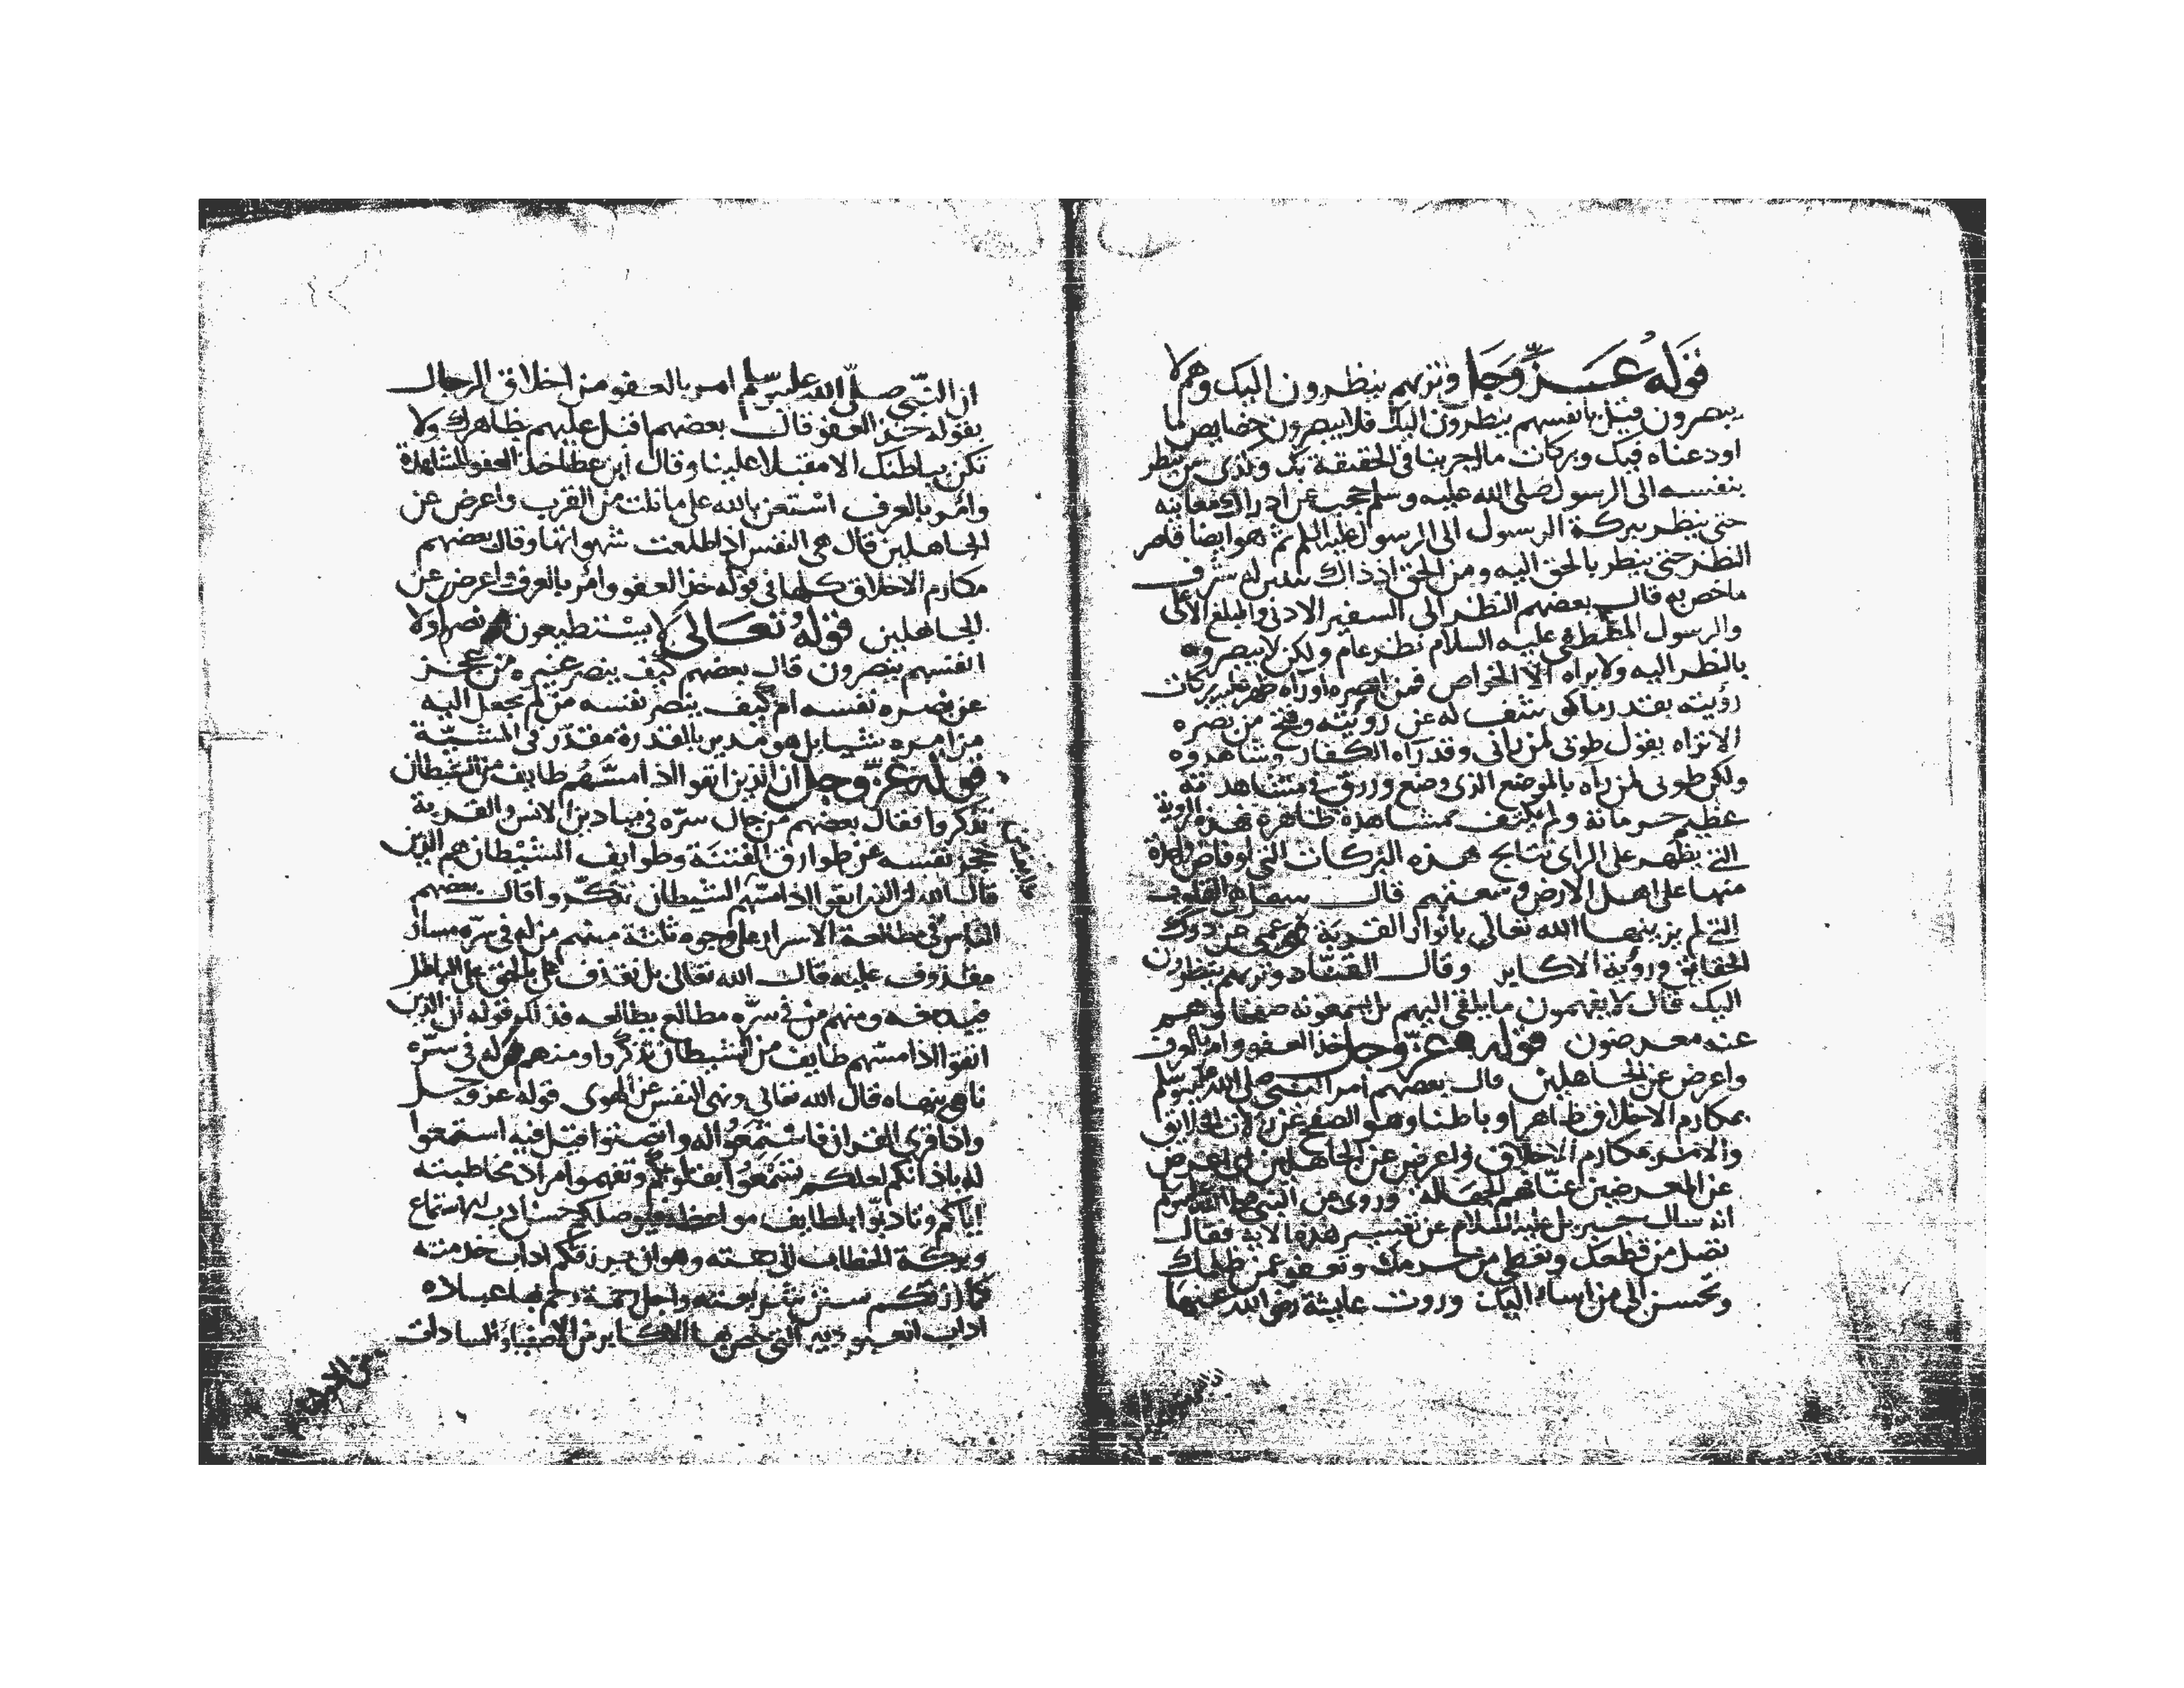 قوله عز وجل وتريهم ينظرون اليك وهم لا
يبصرون قيل بانفسهم ينظرون اليك فلا يبصرون خصايص ما
اودعناه فيك وبركات ما اجرينا في الحقيقة بك وكذى من ينظر
بنفسه الى الرسول صلى الله عليه وسلم حجب عن ادراك معاينه
حتى ينظر ببركة الرسول الى الرسول عليه السلم ثم هو ايضا قاصر
النظر حتى ينظر بالحق اليه ومن الحق اذ ذاك له شرف
ماخص به قال بعضهم النظر الى السفير الادنى والمبلغ الاعلى
والرسول المصطفى عليه السلام نظر عام ولكن لا يبصرونه
بالنظر اليه ولا يراه الا الخواص فمن ابصره اوراه ظهر عليه بركات
رؤيته بقدر ما كشف له عن رؤيته وفتح من بصره
الا تراه يقول طوبى لمن راني وقد راه الكفار وشاهدوه
ولكن طوبى لمن راه بالموضع الذى وضع ورزق في مشاهدته
عظيم حرمانة ولم يكتف بمشاهدة ظاهرة فهذه الروية
التي يظهر على الراى نتايج هذه البركات التي لو فاض ذرة
منها على اهل الارض وسعتهم قال سهل هي القلوب
التي لم يزينها الله تعالى بانوار القربة فهي عمى عن درك
الحقائق ورؤية الاكابر وقال القناد وتريهم ينظرون
اليك قال لا يفهمون ما يلقى اليهم بل يسمعونه صفحا وهم
عنه معرضون قوله عز وجل خذ العفو وامر بالعرف
واعرض عن الجاهلين قال بعضهم امر النبي صلى الله عليه وسلم
بمكارم الاخلاق ظاهرا وباطنا وهو الصفح عن زلات الخلايق
والامر بمكارم الاخلاق واعرض عن الجاهلين اى اعرض
عن المعرضين عنا فهم الجهالة وروى عن النبي صلى الله عليه وسلم
انه سال جبريل عليه السلام عن تفسير هذه الاية فقال
تصل من قطعك وتعطي من حرمك وتعفو عمن ظلمك
وتحسن الى من اساء اليك وروت عايشة رضى الله عنها
ان النبي صلى الله عليه وسلم امر بالعفو من اخلاق الرجال
بقوله خذ العفو قال بعضهم اقبل عليهم بظاهرك ولا
تكن بباطنك الا مقبلا علينا وقال ابن عطا خذ العفو بالمشاهدة
وامر بالعرف استعن بالله على ما نلت من القرب واعرض عن
الجاهلين قال هي النفس اذا طلعت شهواتها وقال بعضهم
مكارم الاخلاق كلها في قوله خذ العفو وامر بالعرف واعرض عن
الجاهلين قوله تعالى لا يستطيعون نصرا ولا
انفسهم ينصرون قال بعضهم كيف ينصر غيره من عجز
عن نصره نفسه ام كيف ينصر نفسه من لم تجعل اليه
من امره شيا بل هو مدبر بالقدرة مقدر في المشية
قوله عز وجل ان الذين اتقوا اذا مسهم طايف من الشيطان
تذكروا فقال بعضهم من جال سره في ميادين الانس والقربة
حجز نفسه عن طوارق الفتنة وطوايف الشيطان هم الذين
قال الله ان الذين اتقوا اذا مسهم الشيطان تذكروا قال بعضهم
الناس في مطالعة الاسرار على وجوه ثلثة منهم من له في سره مسار
مقذوف عليه قال الله تعالى بل نقذف بالحق على الباطل
فيدمغه ومنهم من في سره مطالع يطالعه فذلك قوله ان الذين
اتقوا اذا مسهم طايف من الشيطان تذكروا ومنهم من له في سره
ناهي ينهاه قال الله تعالى ونهى النفس عن الهوى قوله عز وجل
واذا قرى القران فاستمعوا له وانصتوا قيل فيه استمعوا
له باذانكم لعلكم تستمعوا بقلوبكم وتفهموا مراد مخاطبته
اياكم وتادبوا بلطايف مواعظه فيوصلكم حسن ادب استماع
وبركة الخطاب الى وهو ان يرزقكم اداب خدمته
كما رزقكم سنن شريعته واجل رحمة رحم بها عباده
اداب العبودية التي خص بها الاكابر من الاصفياء والسادات